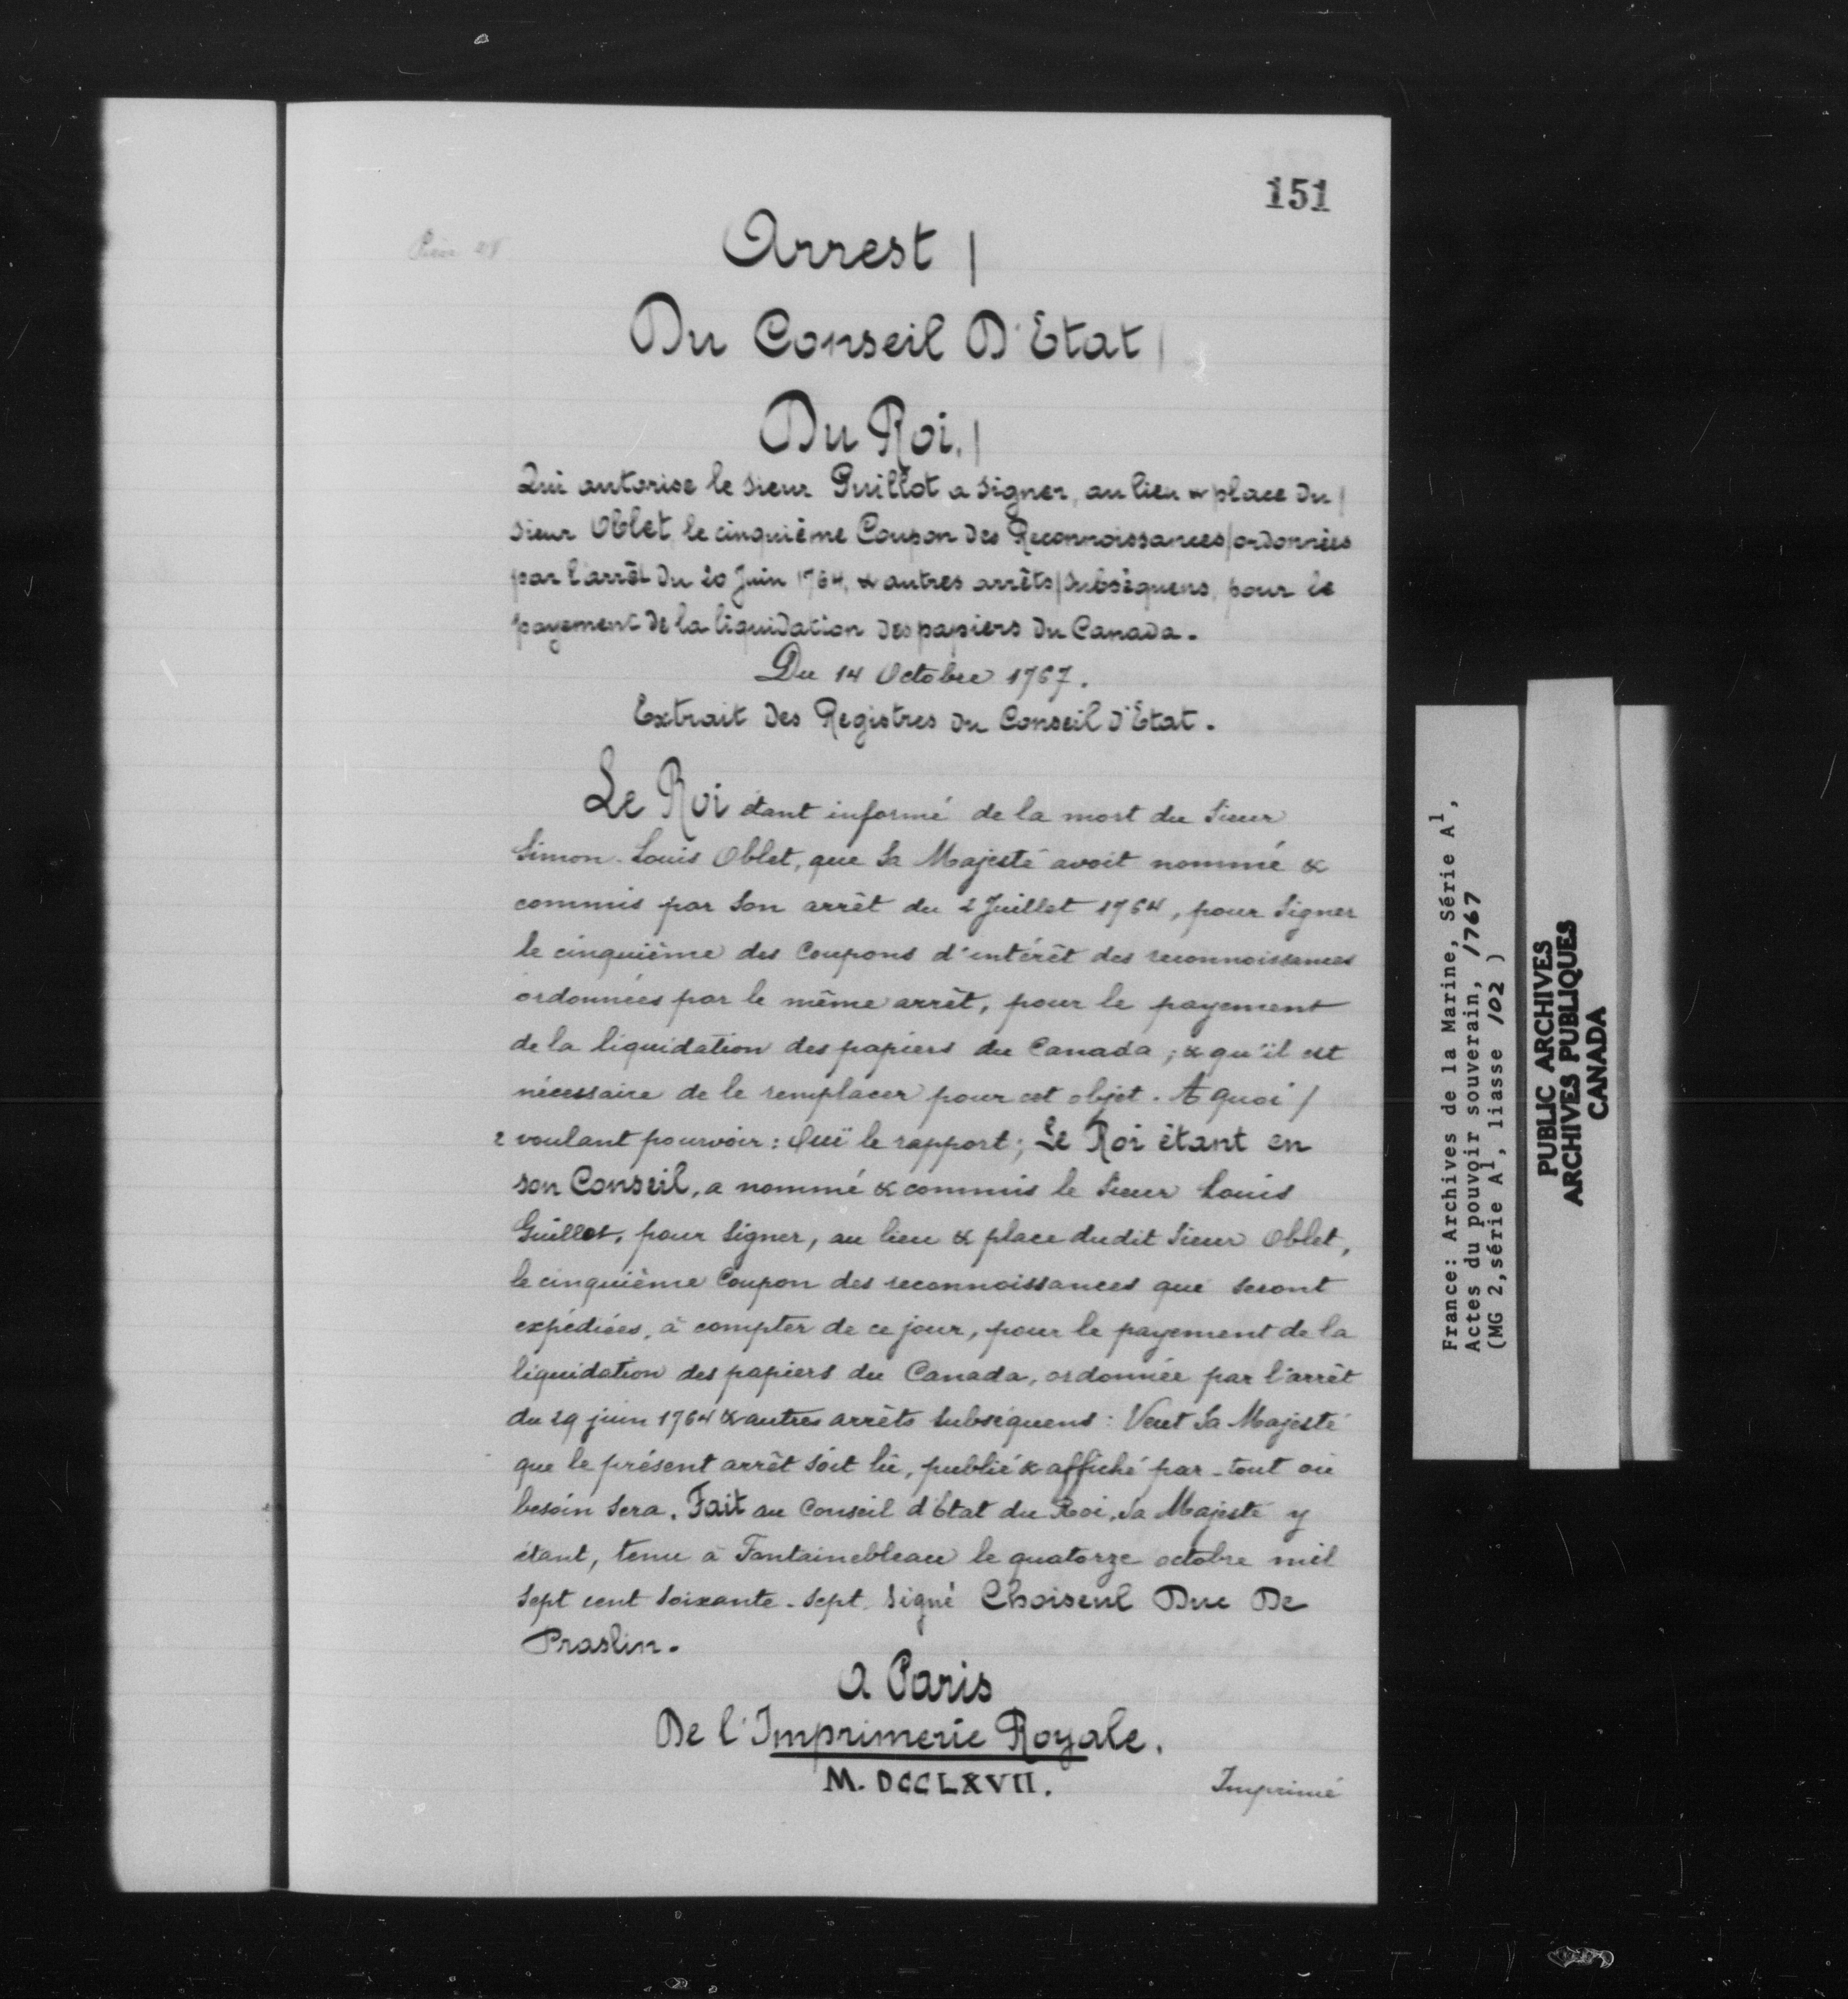 151
Arrest |
Du Conseil D'Etat |
Du Roi. |
Qui autorise le sieur Guillot a signer, au lieu & place du |
sieur Oblet, le cinquième Coupon des Reconnoissances | ordonnées
par l'arrêt du 20 Juin 1764, & autres arrêts | subséquens, pour le
payement de la liquidation des papiers du Canada.
Du 14 Octobre 1767.
Extrait des Registres du Conseil d'Etat.
Le Roi étant informé de la mort du Sieur
Simon-Louis Oblet, que Sa Majesté avoit nommé &
commis par Son arrêt du 2 Juillet 1764, pour Signer
le cinquième des Coupons d'intérêt des reconnoissances
ordonnées par le même arrêt, pour le payement
de la liquidation des papiers du Canada; & qu'il est
nécessaire de le remplacer pour cet objet. A quoi /
2 voulant pourvoir: Ouï le rapport; Le Roi étant en
son Conseil, a nommé & commis le Sieur Louis
Guillot, pour Signer, au lieu & place dudit Sieur Oblet,
le cinquième Coupon des reconnoissances qui seront
expédiées, à compter de ce jour, pour le payement de la
liquidation des papiers du Canada, ordonnée par l'arrêt
du 29 juin 1764 & autres arrêts subséquens: Veut Sa Majesté
que le présent arrêt soit lû, publié & affiché par-tout où
besoin sera. Fait au Conseil d'Etat du Roi, Sa Majesté y
étant, tenu à Fontainebleau le quatorze octobre mil
sept cent soixante-sept. Signé Choiseul Duc De
Praslin.
A Paris
De l'Imprimerie Royale.
M. DCCLXVII.
Imprimé
France: Archives de la Marine, Série A1,
Actes du pouvoir souverain, 1767
(MG 2, série A1, liasse 102 )
PUBLIC ARCHIVES
ARCHIVES PUBLIQUES
CANADA